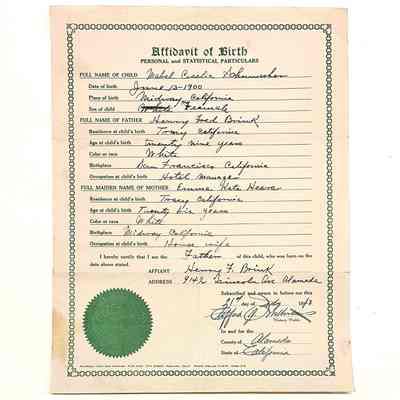 Affidavit of Birth
PERSONAL and STATISTICAL PARTICULARS
FULL NAME OF CHILD Mabel Cecelia Schumacher
Date of birth June 13-1900
Place of birth Midway California
Sex of child Feamale
FULL NAME OF FATHER Henry Fred Brink
Residence at child's birth Tracy California
Age at child's birth twenty nine years
Color or race White
Birthplace San Francisco California
Occupation at child's birth Hotel Manager
FULL MAIDEN NAME OF MOTHER Emma Kate
Residence at child's birth Tracy California
Age at child's birth Twenty six years
Color or race White
Birthplace Midway California
Occupation at child's birth House wife
I hereby certify that I am the Father of this child, who was born on the
date above stated.
AFFIANT Henry F. Brink
ADDRESS 9142 Lincoln Ave Alameda
Subscribed and sworn to before me this
21st day of July
Notary Public
In and for the
County of Alameda
State of California